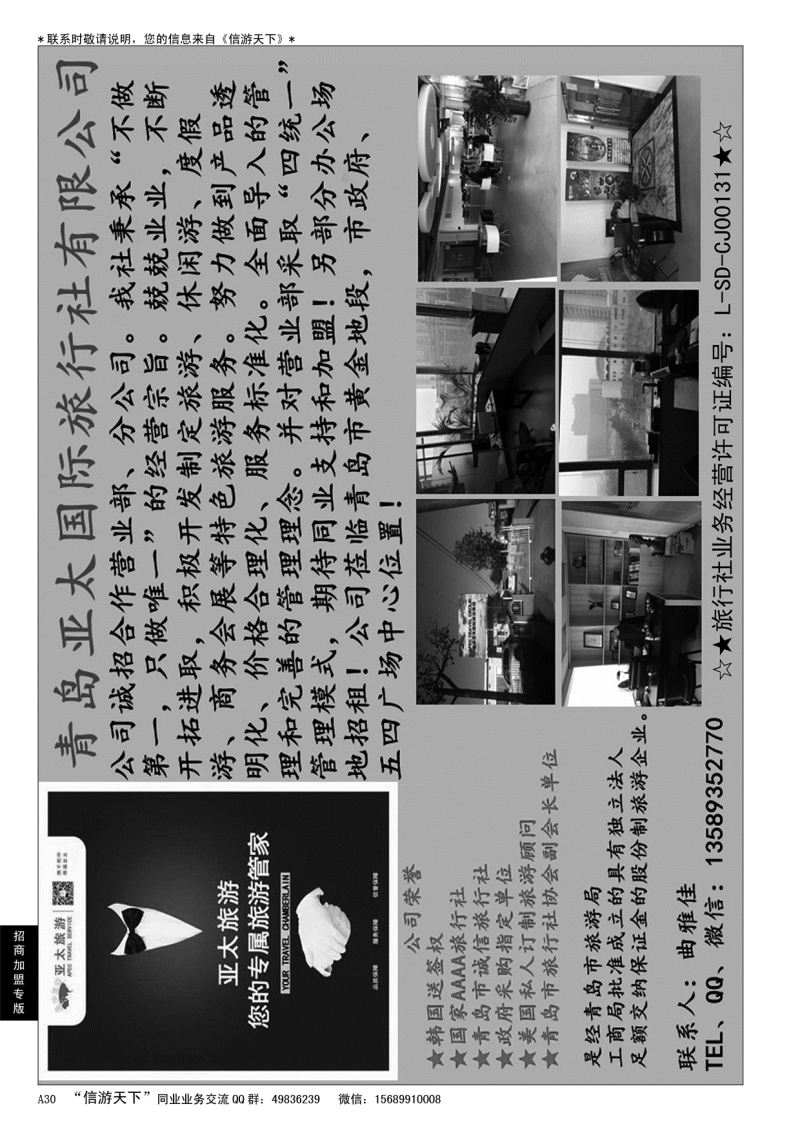 *联系时敬请说明，您的信息来自《信游天下》*
青岛亚太国际旅行社有限公司
公司诚招合作营业部、分公司。我社秉承“不做
第一，只做唯一”的经营宗旨。兢兢业业，不断
开拓进取，积极开发制定旅游、休闲游、度假
游、商务会展等特色旅游服务。努力做到产品透
明化、价格合理化、服务标准化。全面导入的管
理和完善的管理理念。并对营业部采取“四统一”
管理模式，期待同业支持和加盟！另部分办公场
地招租！公司莅临青岛市黄金地段，市政府、
五四广场中心位置！
☆★旅行社业务经营许可证编号：L-SD-CJ00131★☆
亚太旅游
APEC TRAVEL SERVICE
亚太旅游
您的专属旅游管家
YOUR TRAVEL CHAMBERLAIN
品质保障 服务保障 信誉保障
公司荣誉
★韩国送签权
★国家AAAA旅行社
★青岛市诚信旅行社
★政府采购指定单位
★美国私人订制旅游顾问
★青岛市旅行社协会副会长单位
是经青岛市旅游局
工商局批准成立的具有独立法人
足额交纳保证金的股份制旅游企业。
联系人：曲雅佳
TEL、QQ、微信：13589352770
招商加盟专版
A30 “信游天下”同业业务交流QQ群：49836239 微信：15689910008